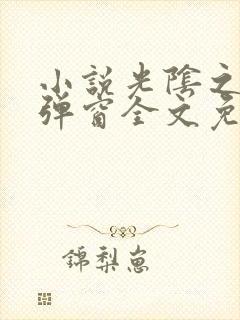 小說光陰之
彈窗全文免
錦梨崽